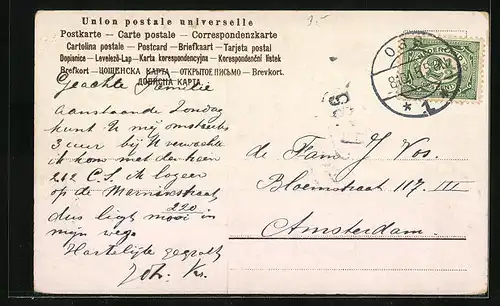 3.-
Union postale universelle
Postkarte — Carte postale — Correspondenzkarte
Cartolina postale — Postcard — Briefkaart — Tarjeta postal
Dopisnice — Levelező-Lap — Karta korespondencyjna — Korespondenční lístek
Brefkort — ЦОЩЕНСКА КАРТА — ОТКРЫТОЕ ПИСЬМО — Brevkort.
ДОПИСНА КАРТА.
Geachte Familie
Aanstaande Zondag
kunt U mij omstreeks
3 uur bij U verwachte
ik kom met den trein
262 C.S. ik logeer
op de Marnixstraat
220
dus ligt mooi in
mijn weg.
Hartelijke gegroet
Joh. Vos.
de Fam. J Vos.
Bloemstraat 117. III
Amsterdam.
OSS
* 1 *